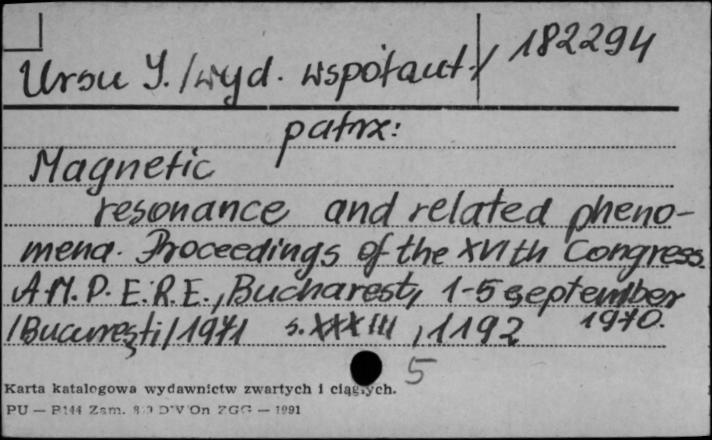 182294
Ursu I. /wyd. współaut./
patrz:
Magnetic
resonance and related pheno-
mena. Proceedings of the XVIth Congress
A.M.P.E.R.E., Bucharest, 1-5 september
1970.
/Bucureşti/ 1971 s. XXXIII, 1192
5
Karta katalogowa wydawnictw zwartych i ciągłych.
PU — P144 Zam. ZGG — 1991